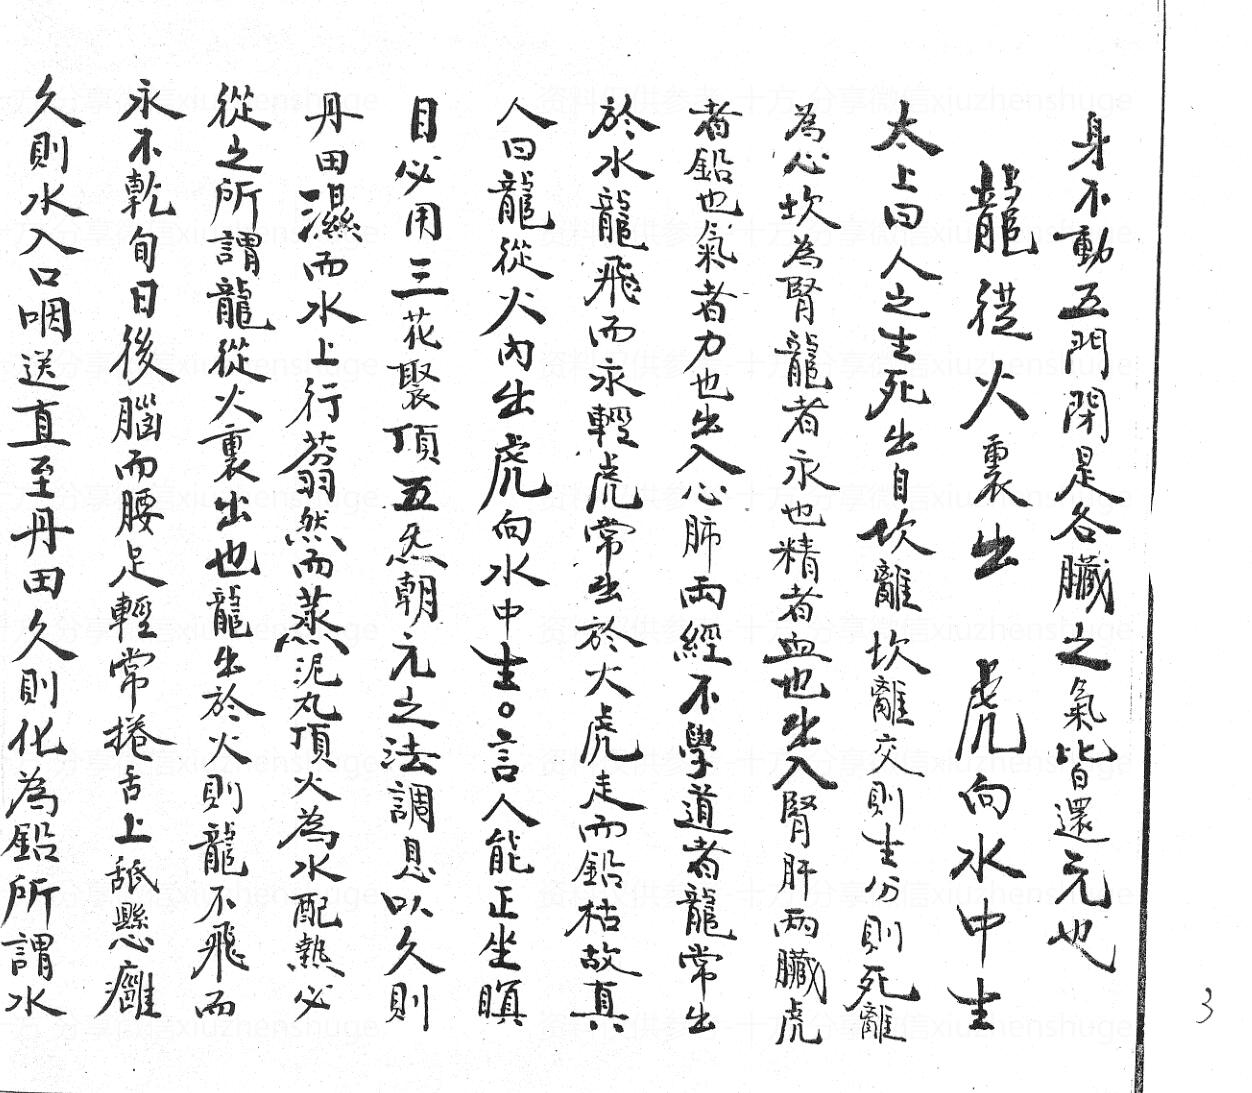 身不動五門閉是各臟之氣皆還元也
龍從火裏出 虎向水中生
太上曰人之生死出自坎離坎離交則生分則死離
為心坎為腎龍者永也精者血也出入腎肝兩臟虎
者鉛也氣者力也出入心肺兩經不學道者龍常出
於水龍飛而永輕虎常出於火虎走而鉛枯故真
人曰龍從火內出虎向水中生。言人能正坐瞑
目必用三花聚頂五炁朝元之法調息以久則
丹田濕而水上行蓊然而蒸泥丸頂火為水配熱必
從之所謂龍從火裏出也龍出於火則龍不飛而
永不乾旬日後腦而腰足輕常捲舌上舐懸癰
久則水入口咽送直至丹田久則化為鉛所謂水
3